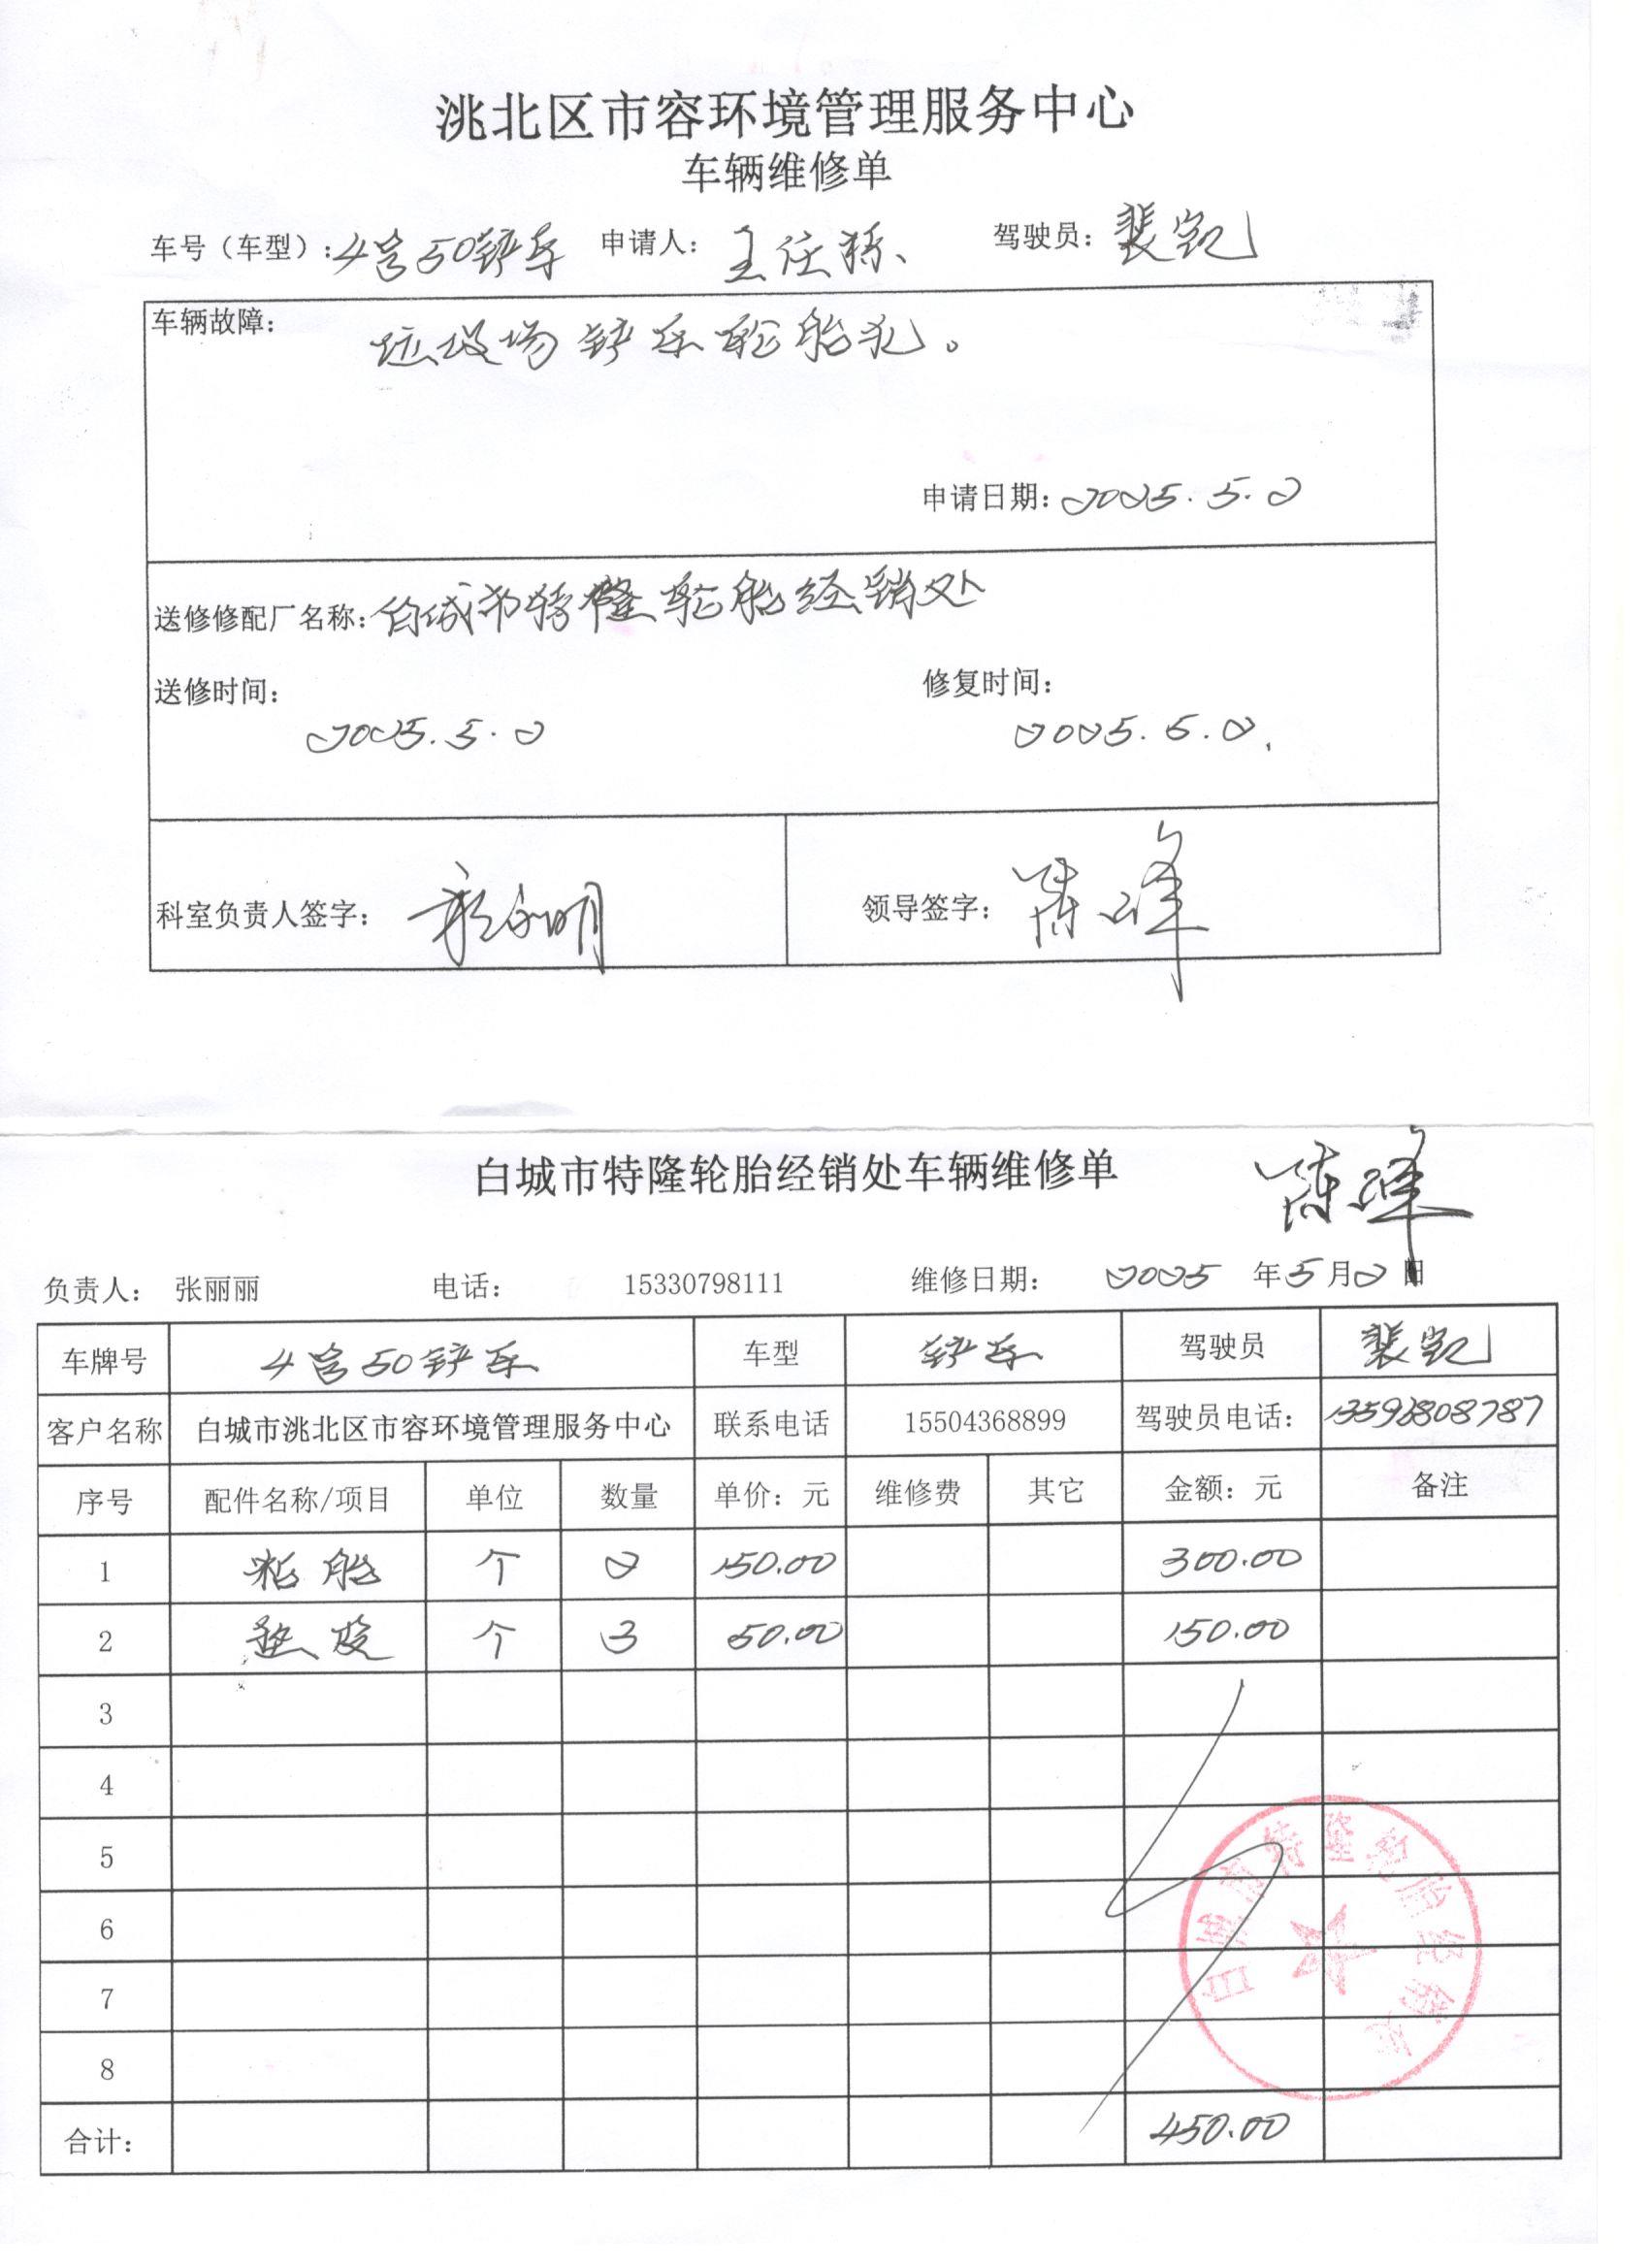 洮北区市容环境管理服务中心
车辆维修单
车号（车型）：4号50铲车 申请人：王任栋 驾驶员：裴凯
车辆故障：
垃圾场铲车轮胎扎。
申请日期：2025.5.2
送修修配厂名称：白城市特隆轮胎经销处
送修时间： 修复时间：
2025.5.2 2025.5.2.
科室负责人签字： 领导签字：陈峰
白城市特隆轮胎经销处车辆维修单 陈峰
负责人： 张丽丽 电话： 15330798111 维修日期： 2025 年5月2日
车牌号 4号50铲车 车型 铲车 驾驶员 裴凯
客户名称 白城市洮北区市容环境管理服务中心 联系电话 15504368899 驾驶员电话：
序号 配件名称/项目 单位 数量 单价：元 维修费 其它 金额：元 备注
1 粘胎 个 2 150.00 300.00
2 垫皮 个 3 50.00 150.00
3
4
5
6
7
8
合计： 450.00
白城市特隆轮胎经销处